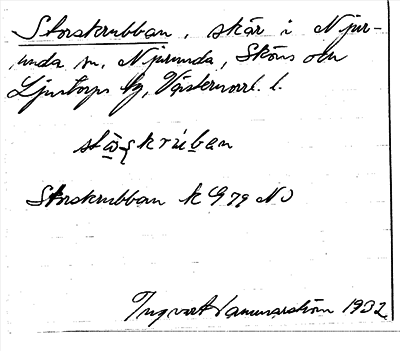 Storskrubban, skär i Njur-
unda sn, Njurunda, Sköns och
Ljustorps tg, Västernorrl. l.
Storskrubban k G 79 NO
Ingvert Hammarström 1932